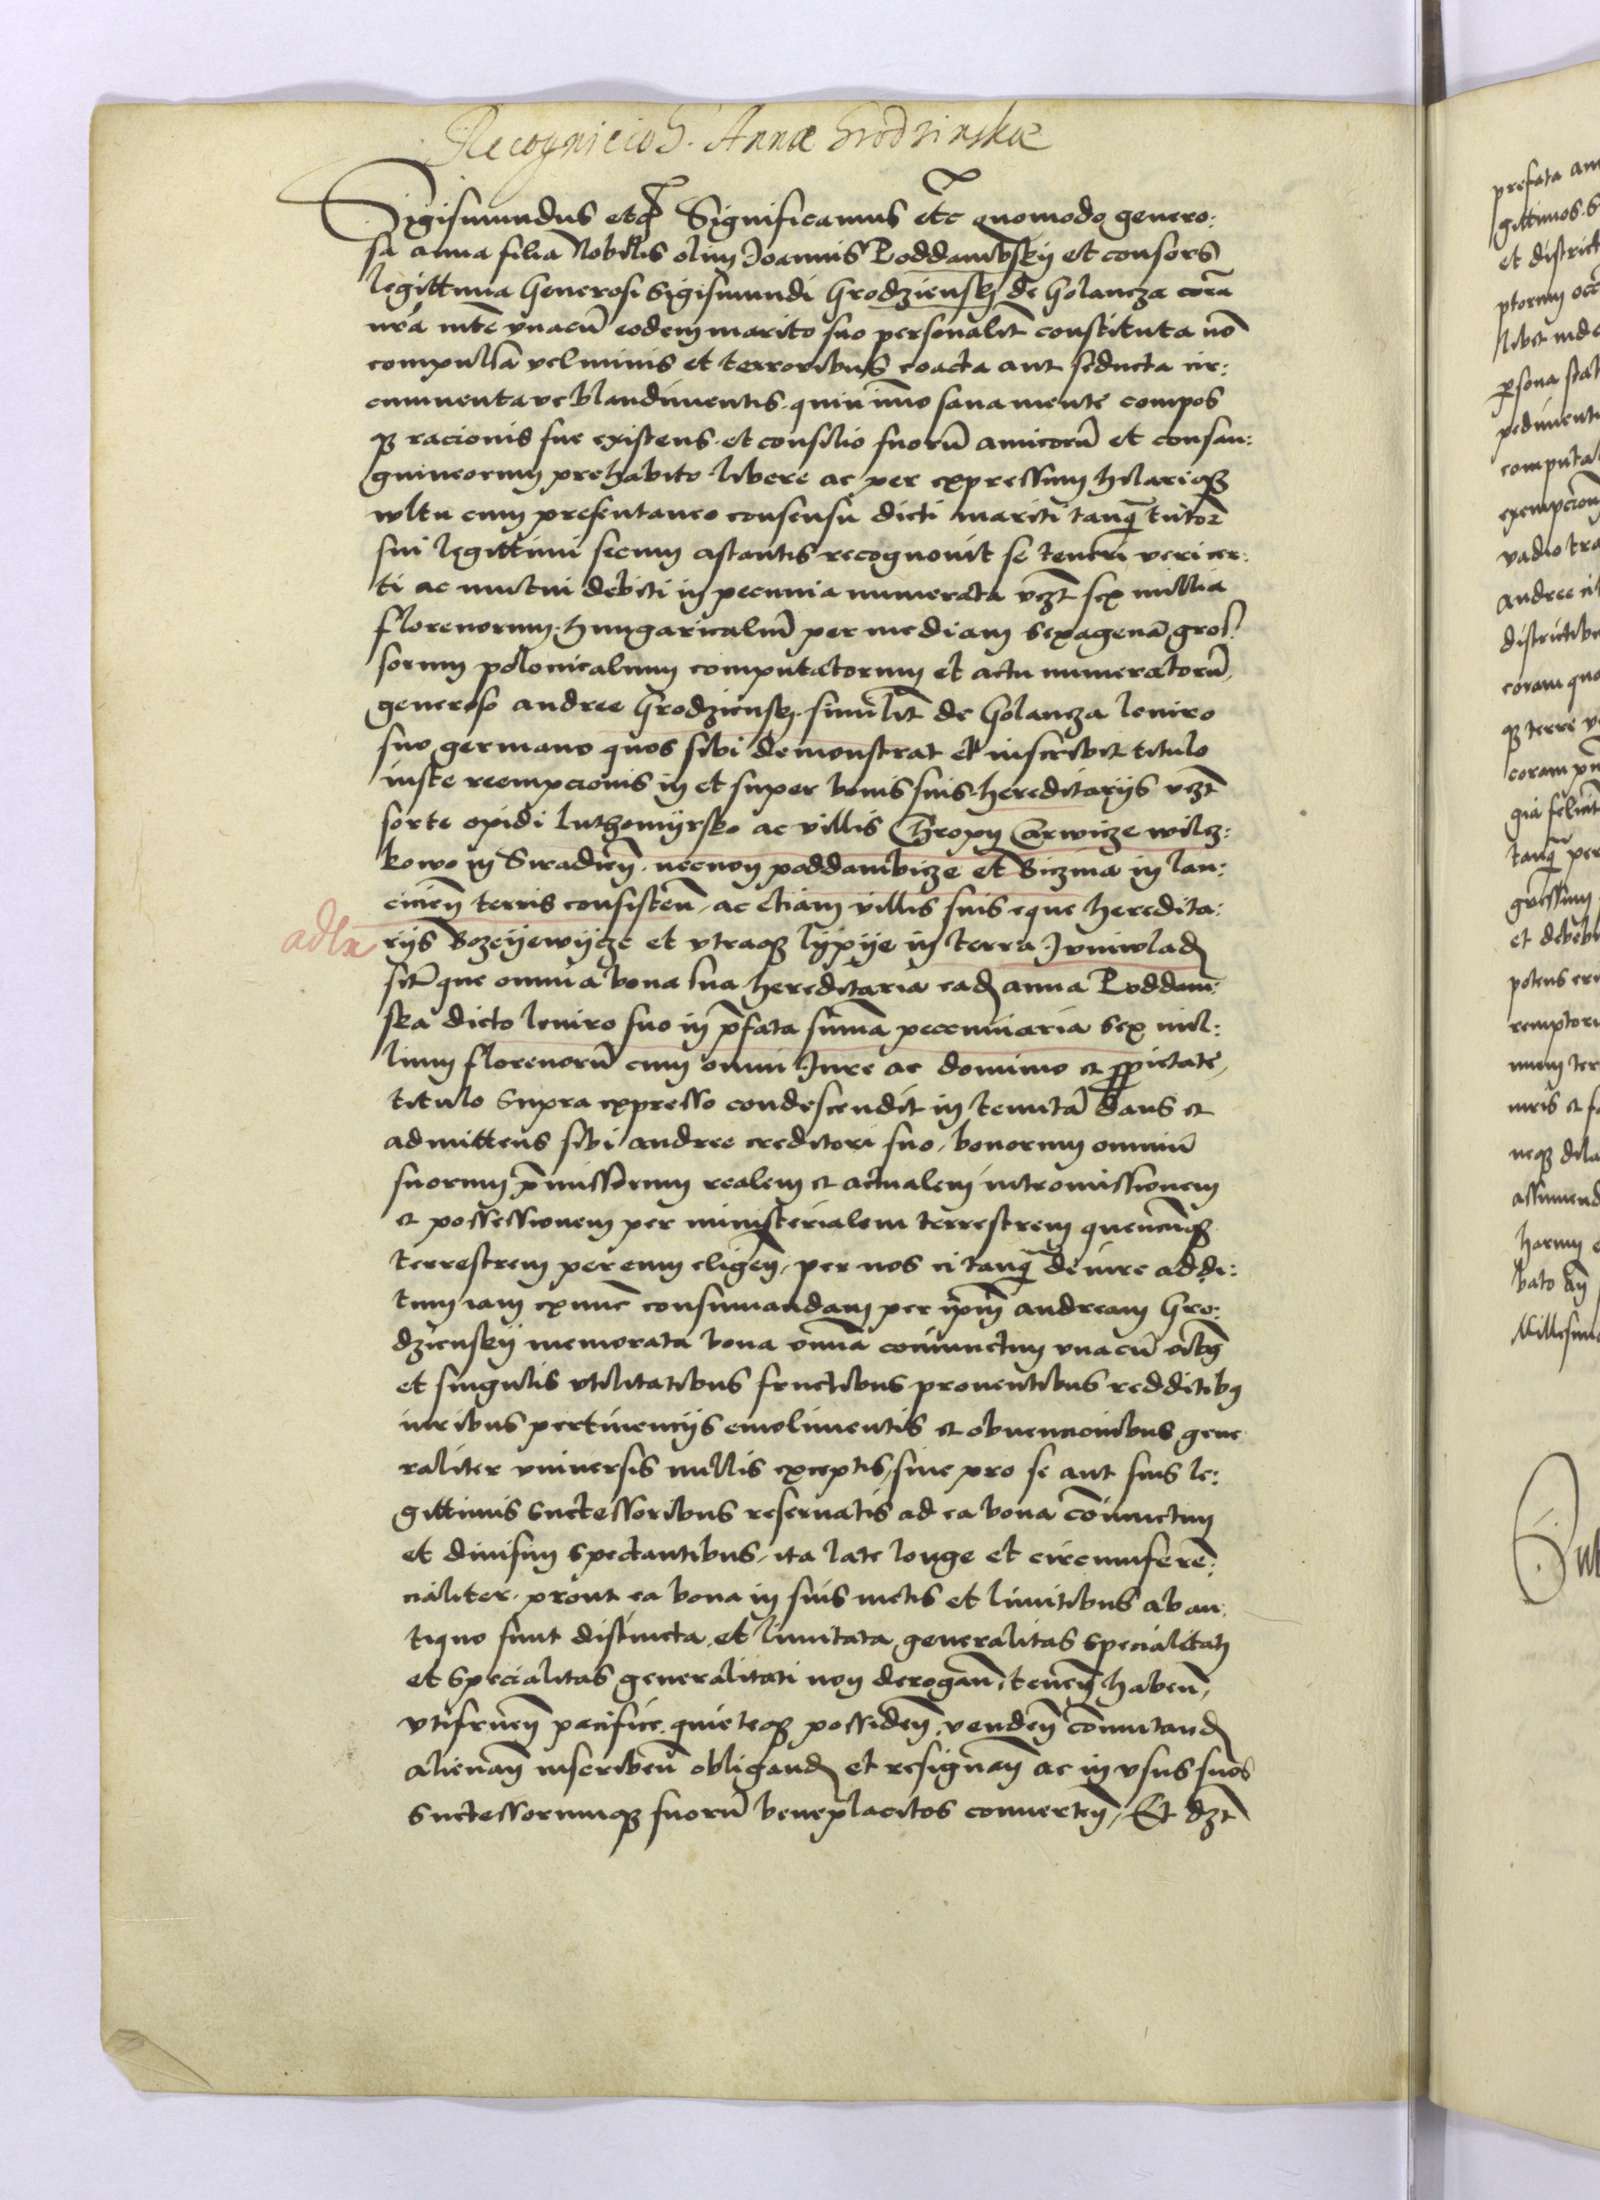 Recognicio G. Annæ Grodzinskæ
Sigismundus etc Significamus etc quomodo genero:
sa anna filia Nobilis olim Joannis Poddambsky et consors
legittima Generosi Sigismundi Grodziensky de Golancza corā
nrā mte vnacū eodem marito suo personalit constituta nō
compulsa vel minis et terroribus coacta aut seducta cir:
cumuentaue blandimentis quinimmo sana mente compos
q3 racionis sue existens et consilio suorū amicorū et consan:
guineorum prehabito libere ac per expressum hilariq3
wltu cum presentaneo consensu dicti mariti tanq̄ tutor
sui legittimi secum astantis recognouit se teneri veri cer:
ti ac mutui debiti in pecunia numerata vz3t sex millia
florenorum hungaricaliū per mediam sexagenā gros:
sorum polonicalium computatorum et actu numeratorū
generoso andree Grodziensky similit de Golancza leuiro
suo germano quos sibi demonstrat et inscribit titulo
iuste reempcionis in et super bonis suis hereditarijs vz3t
sorte opidi luthomyrsko ac villis Chropy Carwicze wilcz:
kowo in Siradień necnon poddambicze et Biczina in lan:
cicień terris consisteń ac etiam villis suis eque heredita:
adla rijs Bozeyewycze et vtraq3 lypye in terra Juniwlad
sit que omnia bona sua hereditaria ead anna Poddam:
ska dicto leuiro suo in p̄fata summa pecuniaria sex mil:
lium florenorū cum omni Jure ac dominio et p̄prietate
titulo supra expresso condescendit in tenutā dans et
admittens sibi andree creditori suo bonorum omniū
suorum p̄missorum realem et actualem intromissionem
et possessionem per ministerialem terrestrem quencūq3
terrestrem per eum eligeń per nos ei tanq̄ de iure addi:
tum iam exnunc consumandam per ip̄m andream Gro:
dziensky memorata bona omnia coniunctim vnacū oībq
et singulis vtilitatibus fructibus prouentibus redditibq
iuribus pertinencijs emolimentis et obuencionibus gene
raliter vniuersis nullis exceptis siue pro se aut suis le:
gittimis successoribus reseruatis ad ea bona coniunctim
et diuisim spectantibus ita late longe et circumferē:
cialiter prout ea bona in suis metis et limitibus ab an:
tiquo sunt distincta et limitata generalitas specialitati
et specialitas generalitati non derogań teneń habeń
vtifrueń pacifice quieteq3 possideń vendeń comutand
alienań inscribeń obligand et resignań ac in vsus suos
successorumq3 suorū beneplacitos conuerteń Et dz3t